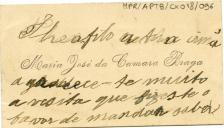 MPR/APTB/CX018/096
Theofilo e tua irmã
Maria José da Camara Braga
agradece-te muito
a visita que fizeste o
favor de mandar saber